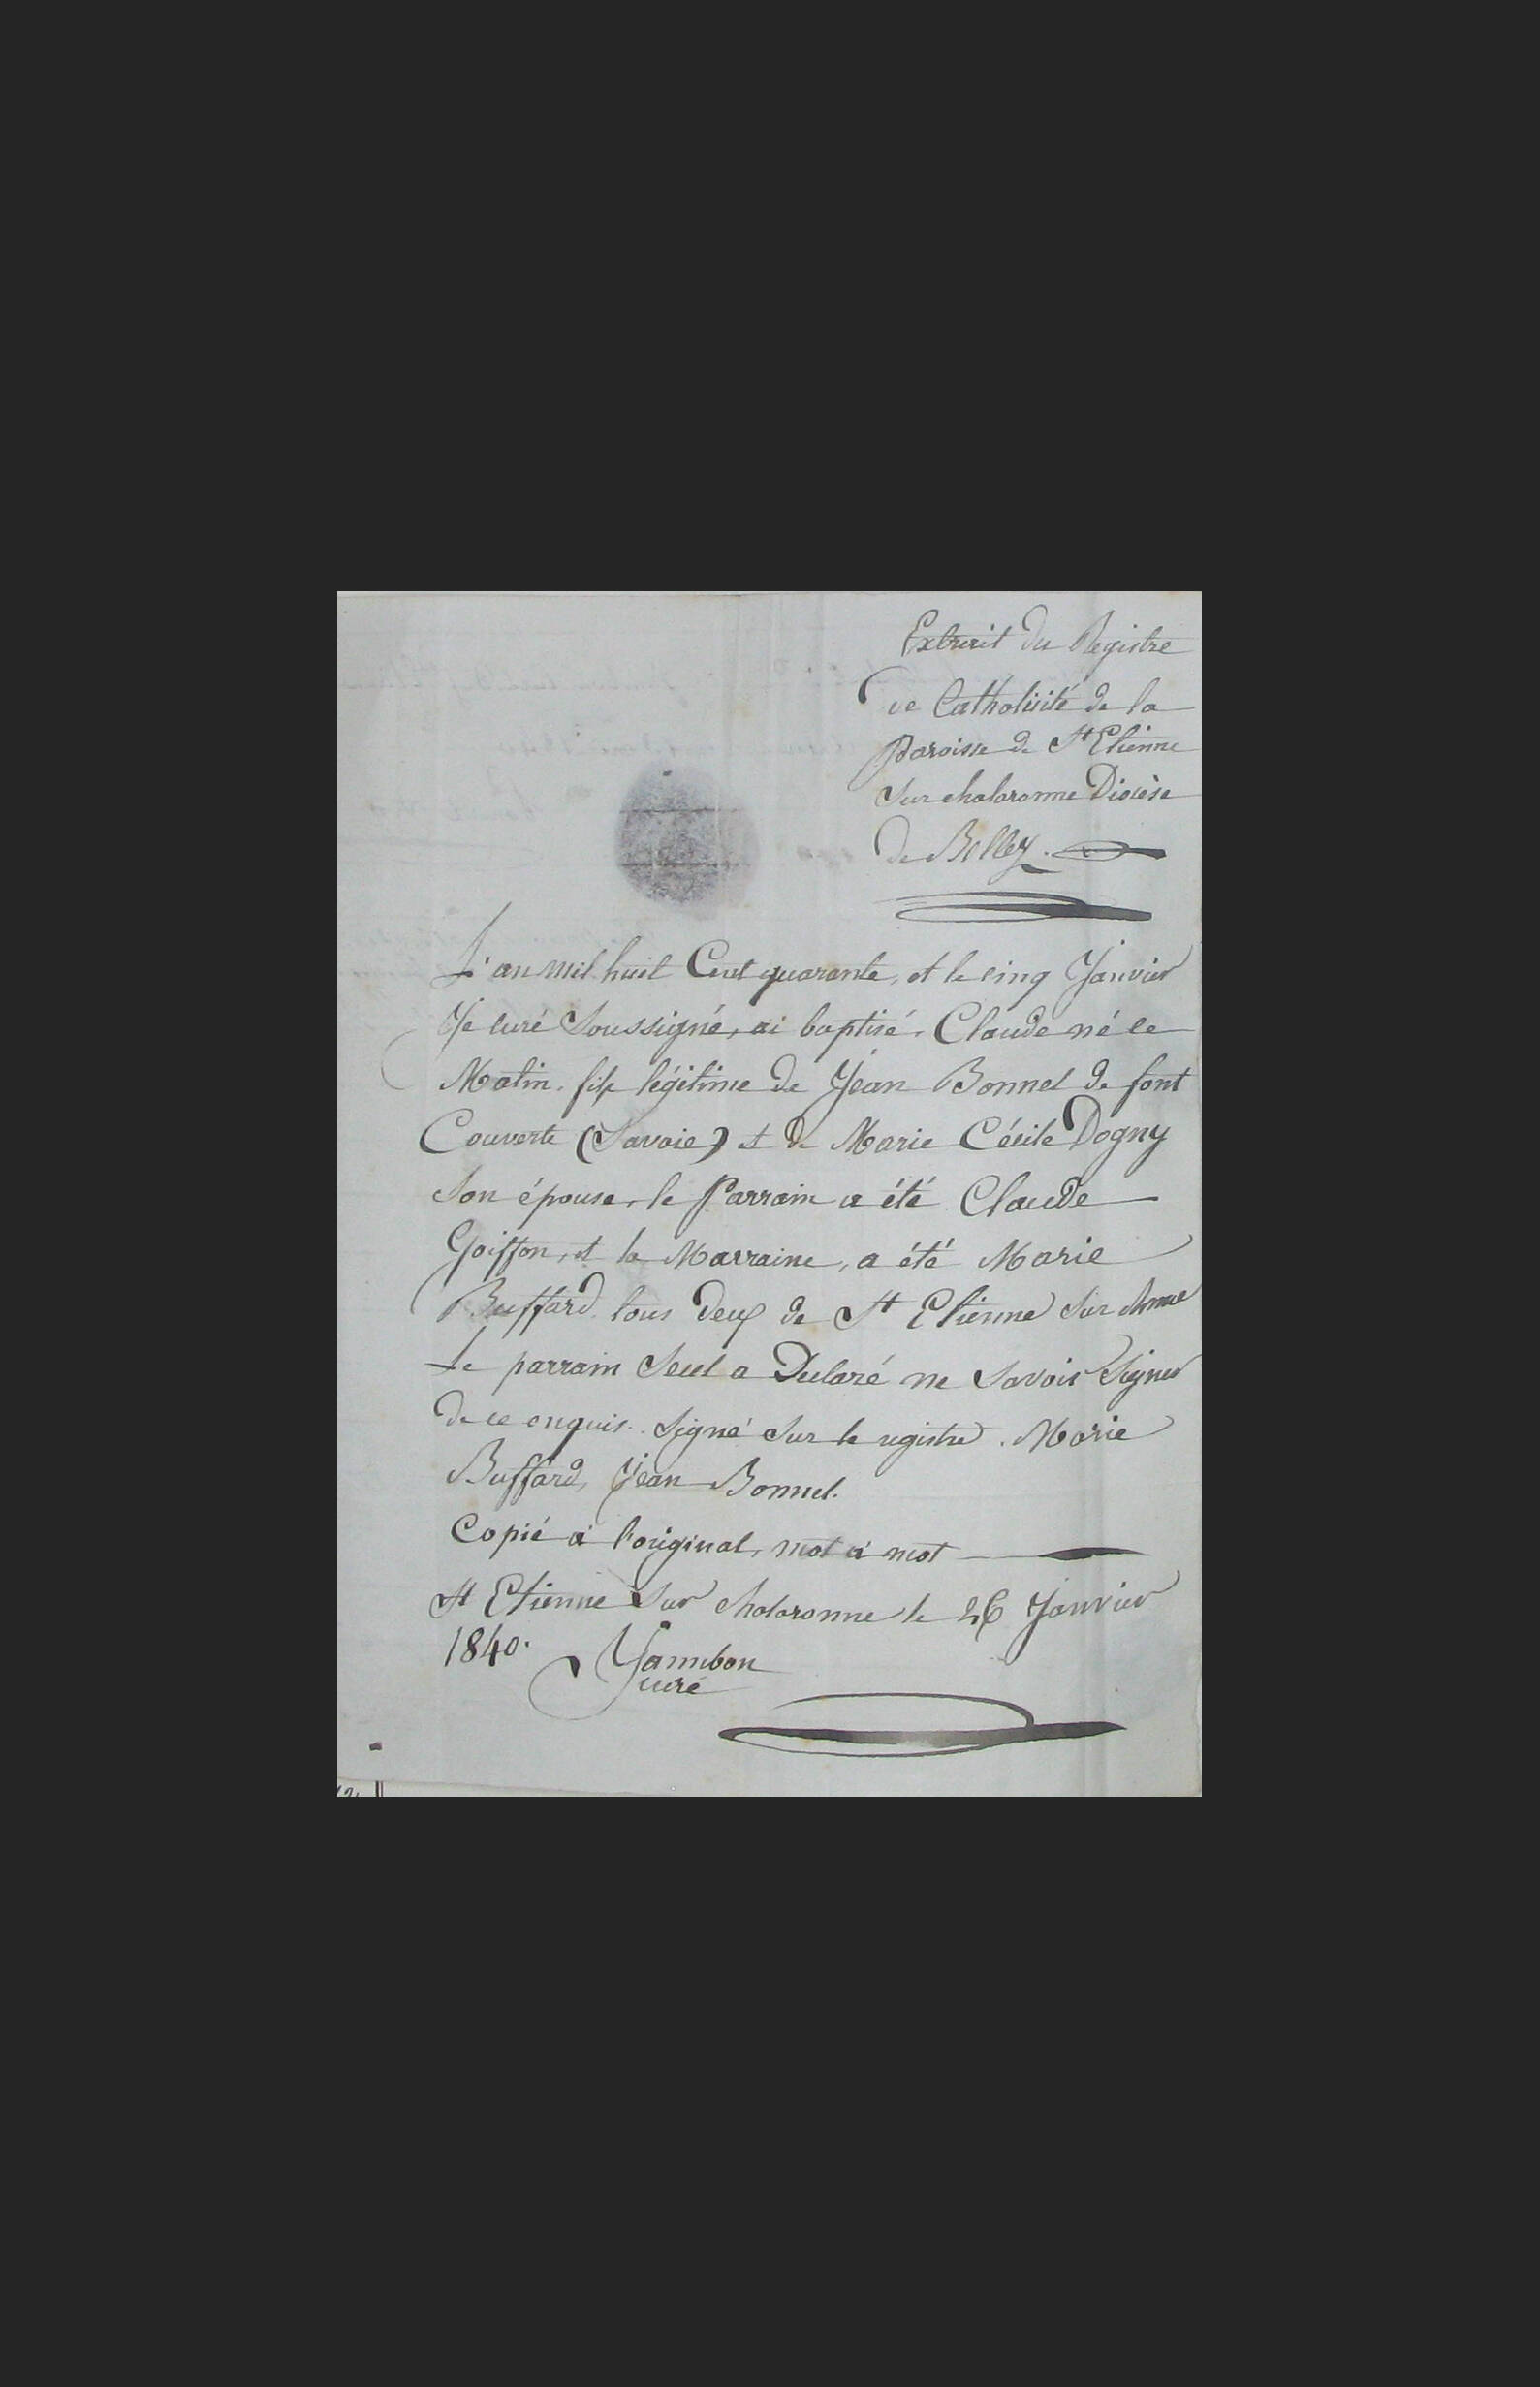 Extrait du Registre
de Catholicité de la
Paroisse de St Etienne
Sur chalaronne Diocèse
de Belley.
L'an mil huit Cent quarante, et le cinq Janvier
Je curé Soussigné, ai baptisé, Claude né ce
Matin, fils légitime de Jean Bonnel de font
Couverte (Savoie) et de Marie Cécile Dogny
Son épouse, le Parrain a été Claude
Goiffon, et la Marraine, a été Marie
Buffard, tous deux de St Etienne Sur
Le parrain Seul a Déclaré ne Savoir Signer
de ce enquis. Signé Sur le registre. Marie
Buffard, Jean Bonnel.
Copié à l'original, mot à mot
St Etienne Sur chalaronne le 26 Janvier
1840.
curé